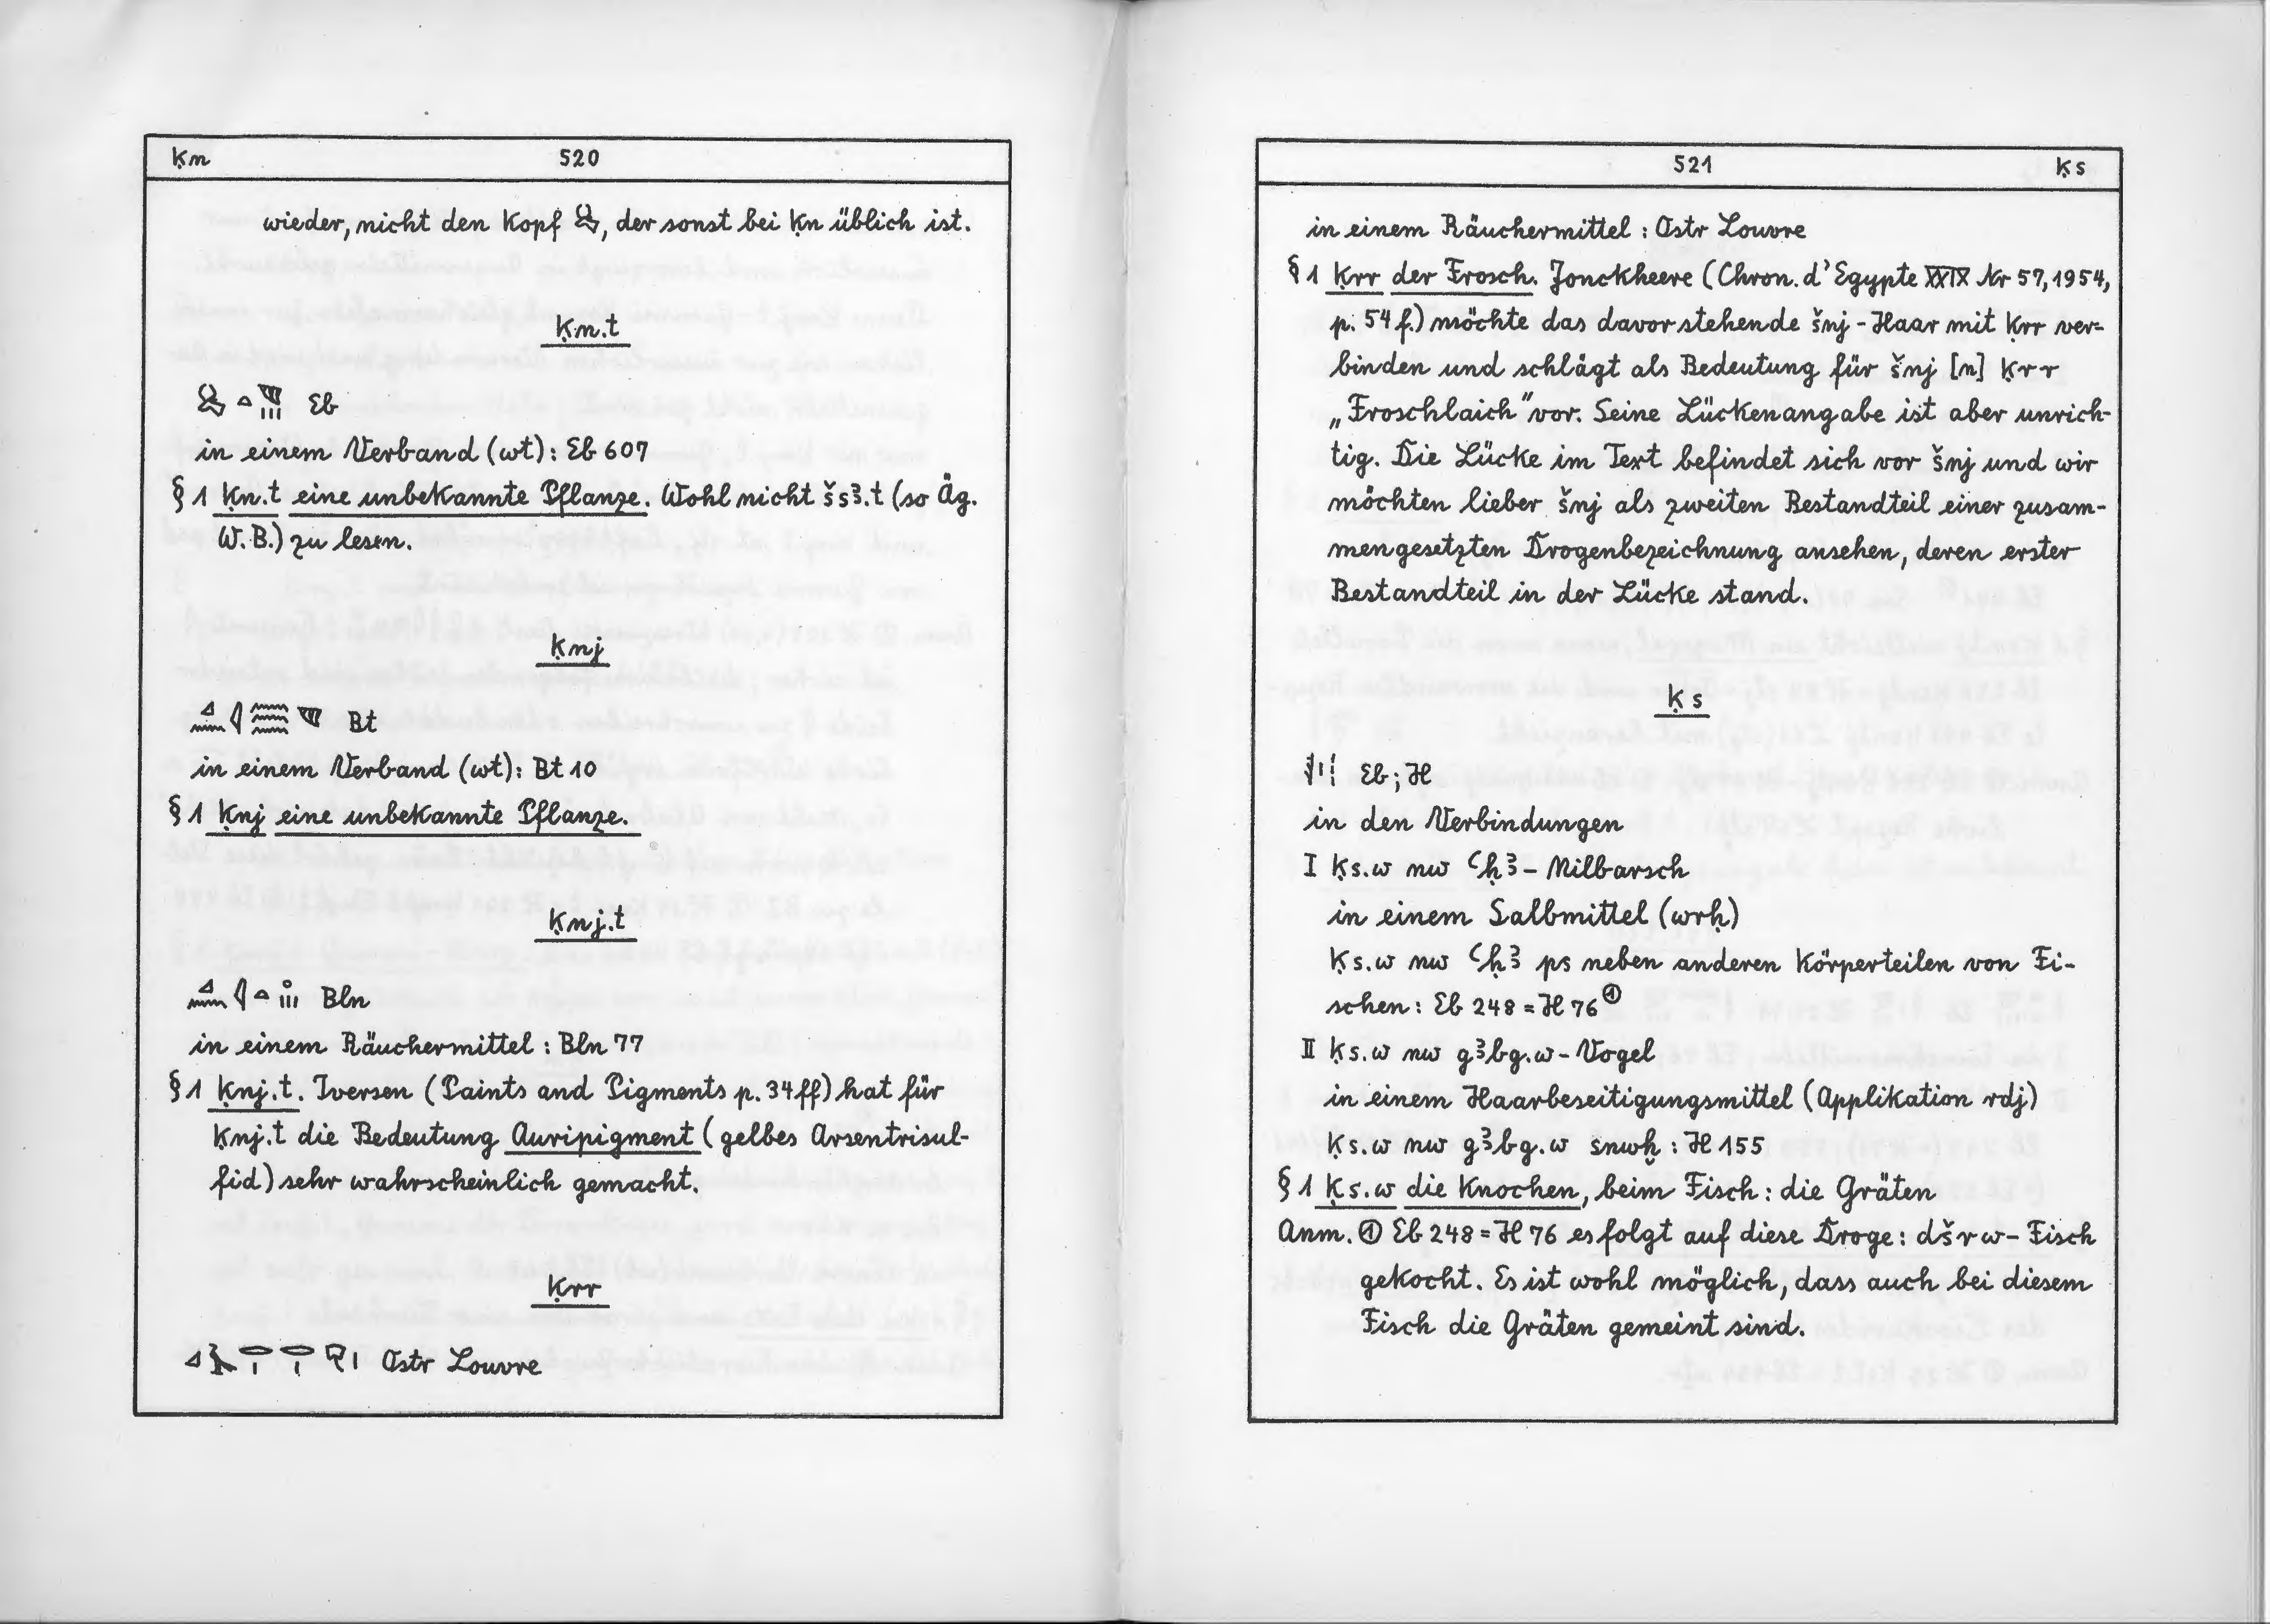 ḳn 520
wieder, nicht den Kopf 𓄏, der sonst bei ḳn üblich ist.
ḳn.t
Eb
in einem Verband (wt): Eb 607
§ 1 ḳn.t eine unbekannte Pflanze. Wohl nicht šsꜣ.t (so Äg.
W.B.) zu lesen.
ḳnj
Bt
in einem Verband (wt): Bt 10
§ 1 ḳnj eine unbekannte Pflanze.
ḳnj.t
Bln
in einem Räuchermittel : Bln 77
§ 1 ḳnj.t. Iversen (Paints and Pigments p. 34 ff) hat für
ḳnj.t die Bedeutung Auripigment (gelbes Arsentrisul-
fid) sehr wahrscheinlich gemacht.
ḳrr
Ostr Louvre
521 ḳs
in einem Räuchermittel : Ostr Louvre
§ 1 ḳrr der Frosch. Jonckheere (Chron. d'Egypte XXIX Nr 57, 1954,
p. 54 f.) möchte das davorstehende šnj - Haar mit ḳrr ver-
binden und schlägt als Bedeutung für šnj [n] ḳrr
„Froschlaich" vor. Seine Lückenangabe ist aber unrich-
tig. Die Lücke im Text befindet sich vor šnj und wir
möchten lieber šnj als zweiten Bestandteil einer zusam-
mengesetzten Drogenbezeichnung ansehen, deren erster
Bestandteil in der Lücke stand.
ḳs
Eb; H
in den Verbindungen
I ḳs.w nw ꜥḥꜣ - Nilbarsch
in einem Salbmittel (wrḥ)
ḳs.w nw ꜥḥꜣ ps neben anderen Körperteilen von Fi-
schen : Eb 248 = H 76 ①
II ḳs.w nw gꜣbg.w - Vogel
in einem Haarbeseitigungsmittel (Applikation rdj)
ḳs.w nw gꜣbg.w śnwḫ : H 155
§ 1 ḳs.w die Knochen, beim Fisch : die Gräten
Anm. ① Eb 248 = H 76 es folgt auf diese Droge : dšrw - Fisch
gekocht. Es ist wohl möglich, dass auch bei diesem
Fisch die Gräten gemeint sind.